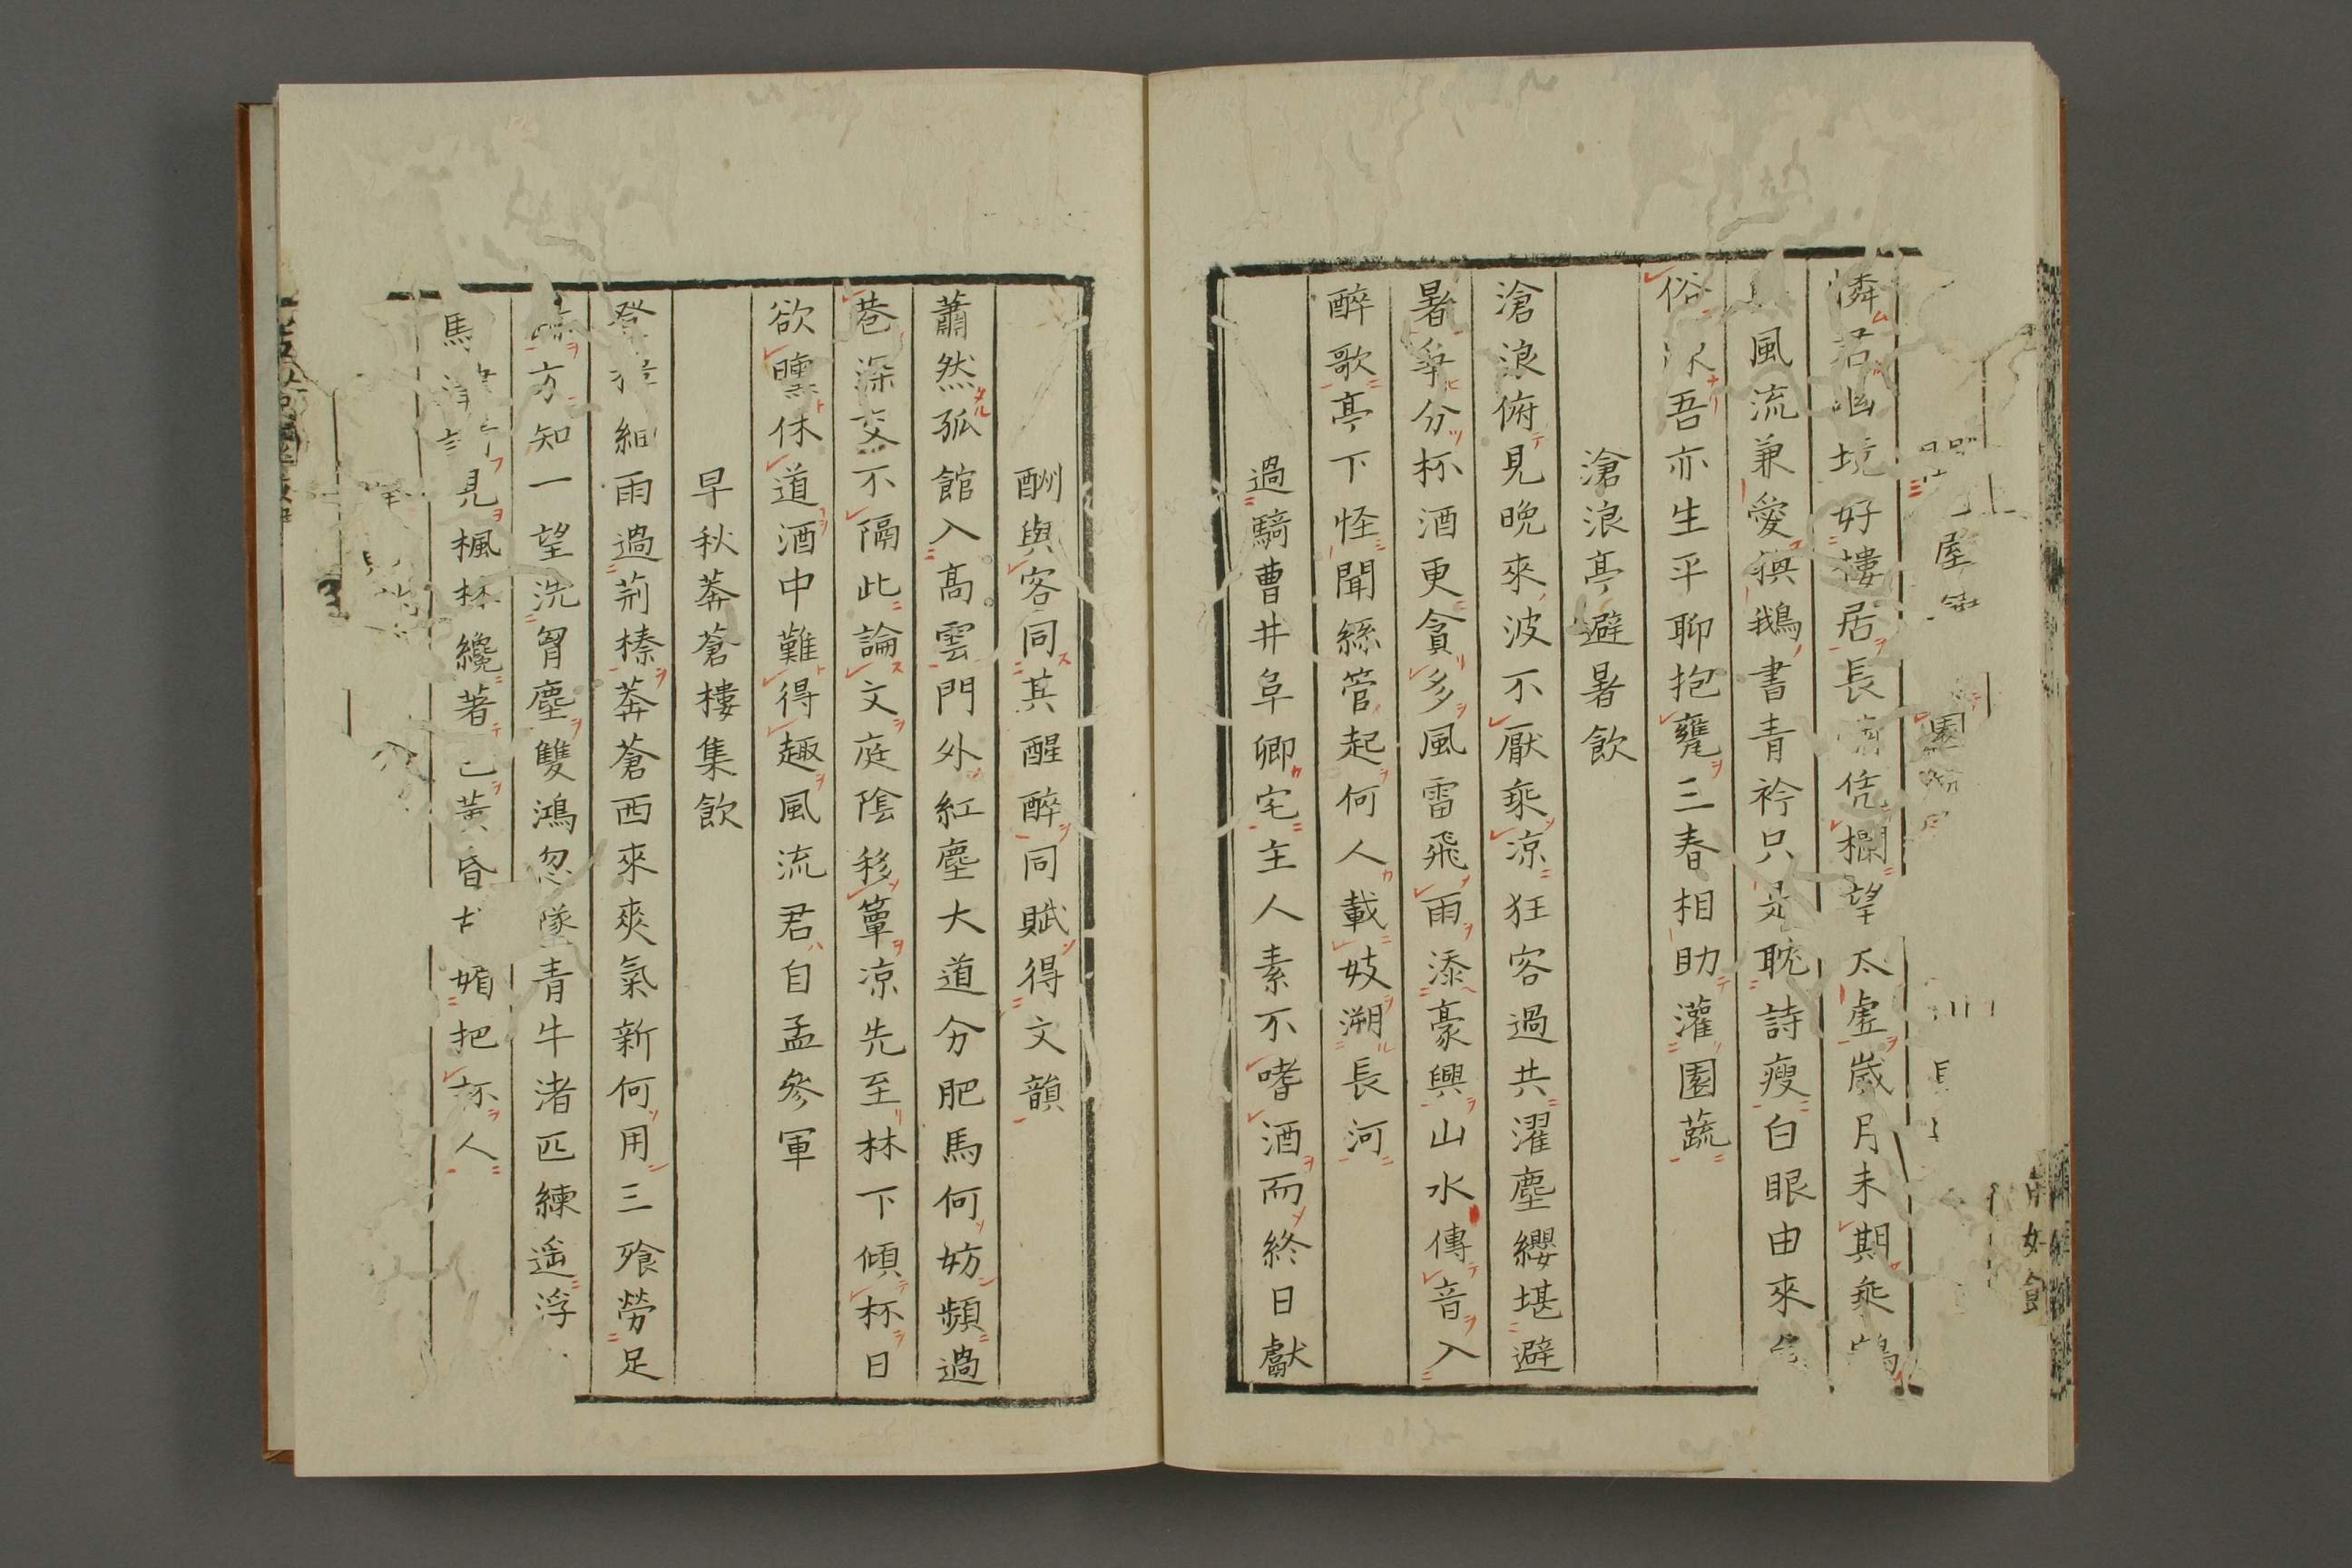 屋
園
憐君幽境好樓居長嘯凭欄望太虛歲月未期乘鶴
風流兼愛換鵝書青衿只是耽詩瘦白眼由來
俗 吾亦生平聊抱甕三春相助灌園蔬
滄浪亭避暑飲
滄浪俯見晚來波不厭乘凉狂客過共濯塵纓堪避
暑爭分杯酒更貪多風雷飛雨添豪興山水傳音入
醉歌亭下怪聞絲管起何人載妓溯長河
過騎曹井阜卿宅主人素不嗜酒而終日獻
酬與客同其醒醉同賦得文韻
蕭然孤館入高雲門外紅塵大道分肥馬何妨頻過
巷深交不隔此論文庭陰移簟凉先至林下傾杯日
欲曛休道酒中難得趣風流君自孟參軍
早秋莽蒼樓集飲
登 細雨過荊榛莽蒼西來爽氣新何用三飱勞足
方知一望洗胷塵雙鴻忽墜青牛渚匹練遥浮
馬 見楓林纔著 黃昏 媚把杯人